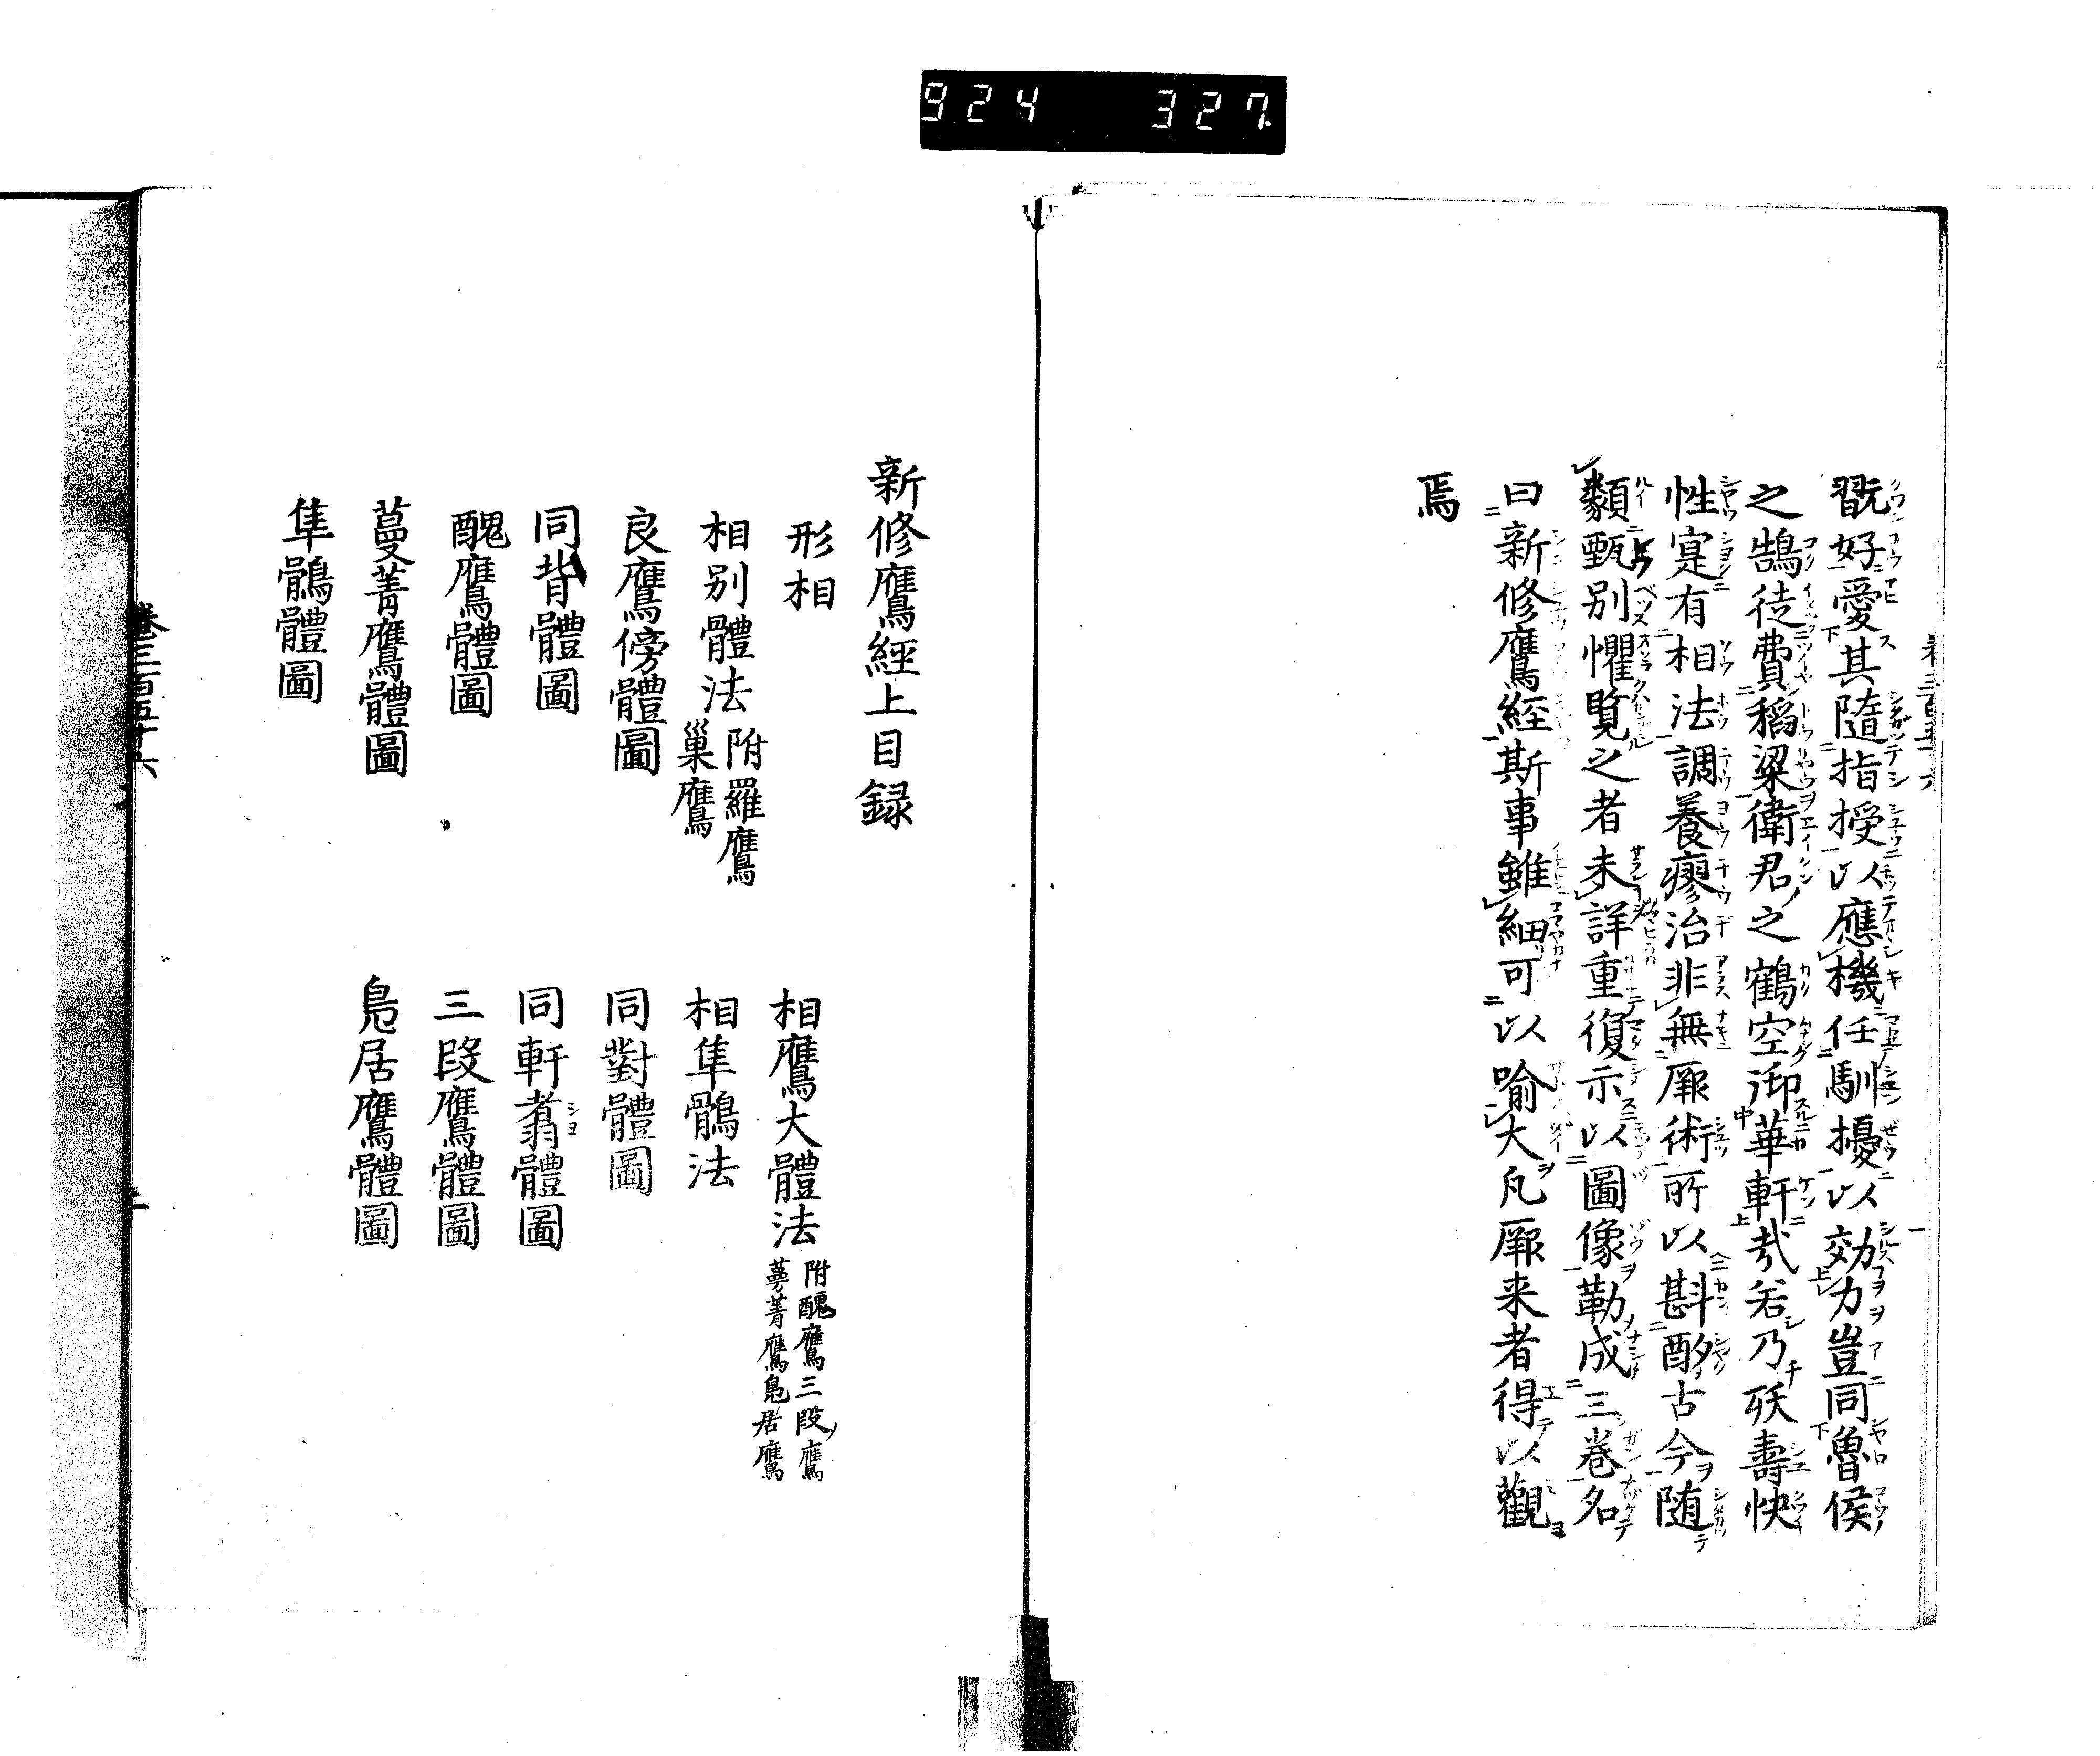 924 327
卷三百五十六
翫好愛其隨指授以應機任馴擾以効力豈同魯侯
之鵠徒費稻粱衛君之鶴空御華軒㢤若乃殀壽快
性寔有相法調養瘳治非無厥術所以斟酌古今随
類甄別懼覧之者未詳重復示以圖像勒成三卷名
曰新修鷹經斯事雖細可以喻大凡厥来者得以觀
焉
新修鷹經上目録
形相
相鷹大體法 附醜鷹三段鷹蔓菁鷹鳧居鷹
相别體法 附羅鷹巣鷹
相隼鶻法
良鷹傍體圖
同對體圖
同背體圖
同軒翥體圖
醜鷹體圖
三段鷹體圖
蔓菁鷹體圖
鳧居鷹體圖
隼鶻體圖
卷三百五十六